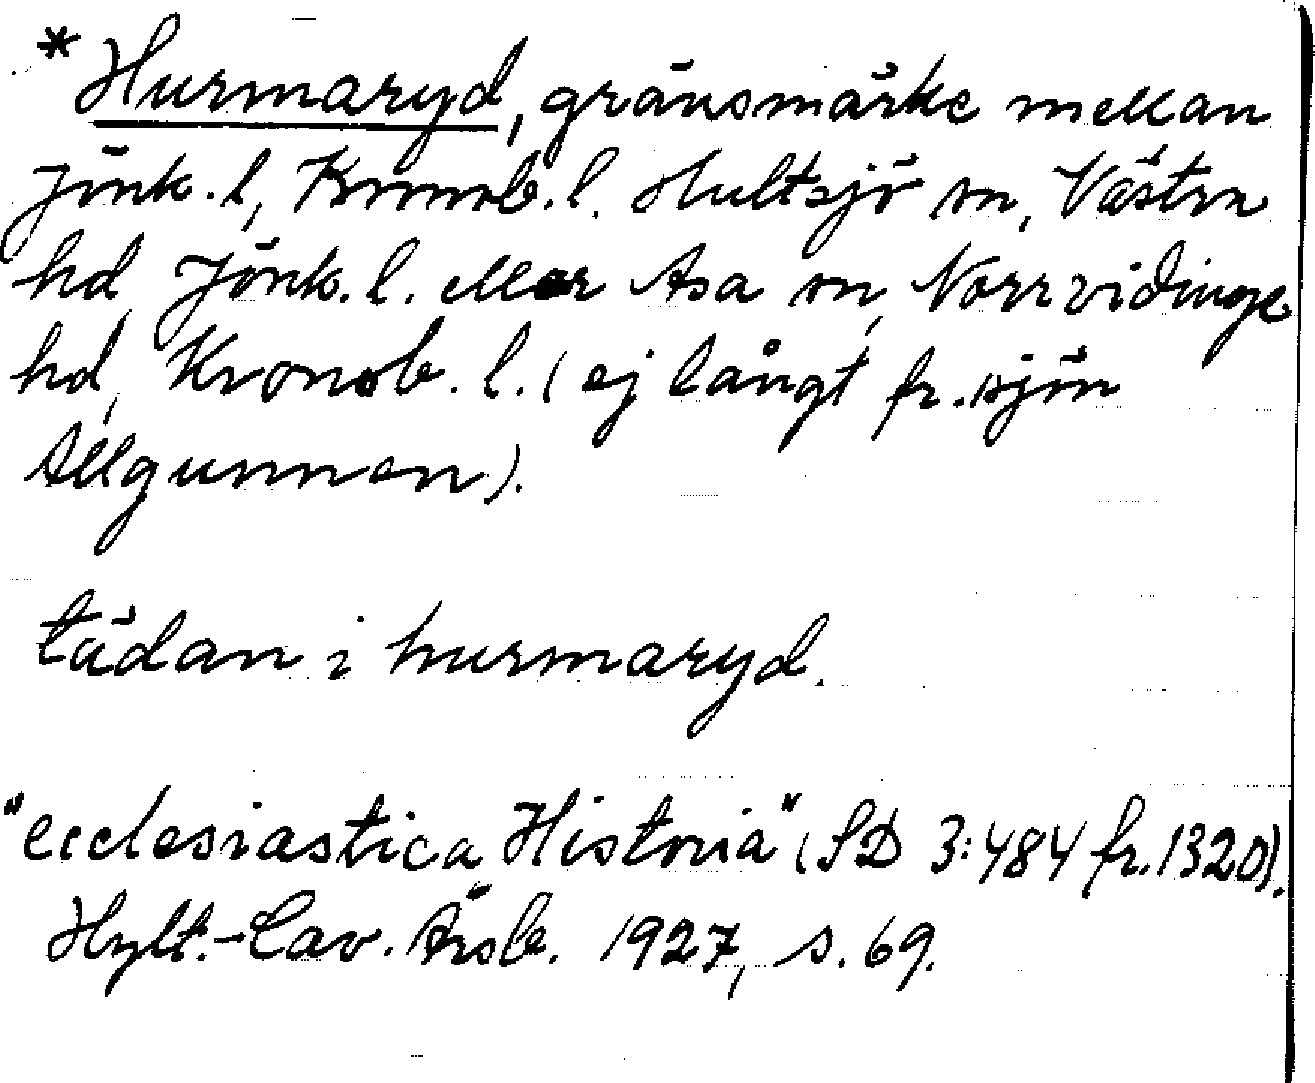 * Hurmaryd, gränsmärke mellan
Jönk. l, Kronob. l. Hultsjö sn, Västra
hd, Jönk. l. eller Asa sn, Norrvidinge
hd, Kronob. l. (ej långt fr. sjön
Allgunnen).
tädan i hurmaryd.
"ecclesiastica Historia" (SD 3:484 fr. 1320).
Hylt.-Cav. Årsb. 1927, s. 69.